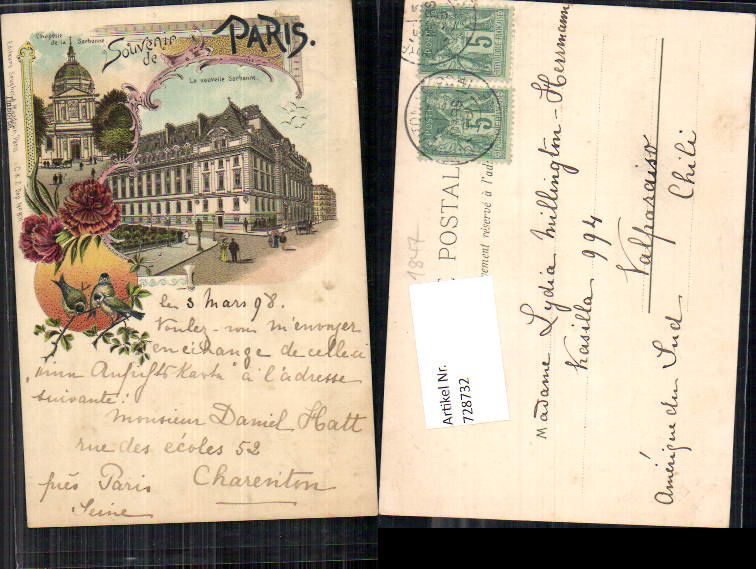 Chapelle
de la Sorbonne
Souvenir
de
PARIS.
La nouvelle Sorbonne.
le 3 Mars 98.
Voulez-vous m'envoyer
en échange de celle-ci
„eine Ansichts Karte" à l'adresse
suivante:
Monsieur Daniel Hatt
rue des écoles 52
près Paris Charenton
Seine
5
5
POSTAL
1847
Artikel Nr.
728732
Madame Lydia Millington-Herrmann
Kasilla 994
Valparaiso
Chili
Amérique du Sud